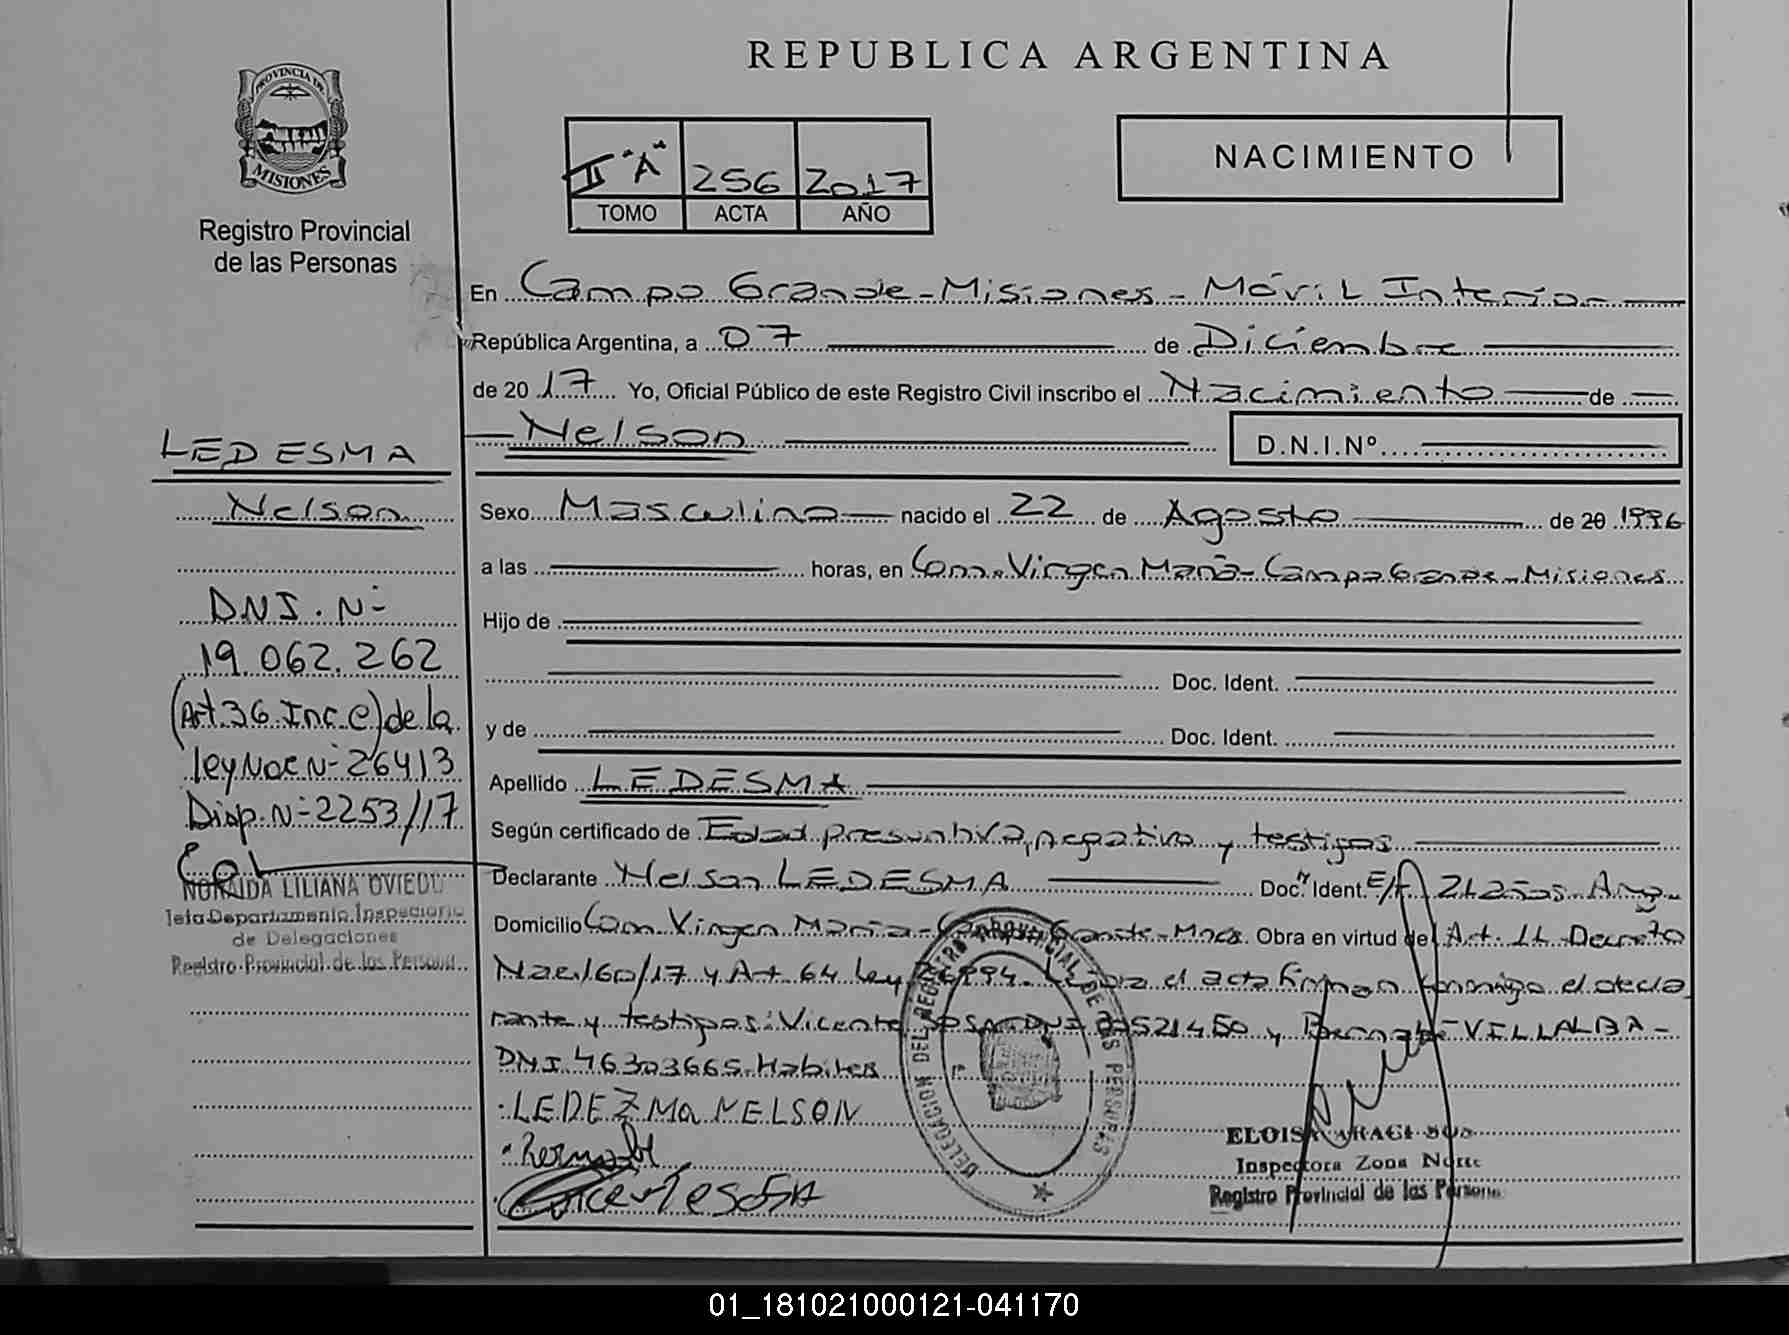 REPUBLICA ARGENTINA
PROVINCIA DE
MISIONES
Registro Provincial
de las Personas
II "A" 256 2017
TOMO ACTA AÑO
NACIMIENTO
En Campo Grande - Misiones - Móvil Interior
República Argentina, a 07 de Diciembre
de 20 17 Yo, Oficial Público de este Registro Civil inscribo el Nacimiento de
Nelson D.N.I.Nº
LEDESMA
Nelson
DNI. Nº
19.062.262
(Art 36 Inc. C) de la
ley Nac Nº 26413
Disp. Nº 2253/17
NORAIDA LILIANA OVIEDO
Jefa Departamento Inspectoria
de Delegaciones
Registro Provincial de las Personas
Sexo Masculino nacido el 22 de Agosto de 20 1996
a las horas, en Com. Virgen María - Campo Grande - Misiones
Hijo de
Doc. Ident.
y de Doc. Ident.
Apellido LEDESMA
Según certificado de Edad presuntiva, negativo y testigos
Declarante Nelson LEDESMA Doc. Ident. E/T 21 años Arg.
Domicilio Com Virgen María - Campo Grande - Mnes. Obra en virtud de Art. 11 Decreto
Nac 160/17 y Art. 64 Ley 26994. Leída el acta firman conmigo el decla
rante y testigos: Vicente SOSA DNI 21450 y Bernabé VILLALBA -
DNI 46303665 Habiles
LEDEZMA NELSON
Bernabe
Vicente SOSA
DELEGACION DEL REGISTRO PROVINCIAL DE LAS PERSONAS
ELOISA ARACI
Inspectora Zona Norte
Registro Provincial de las Personas
01_181021000121-041170